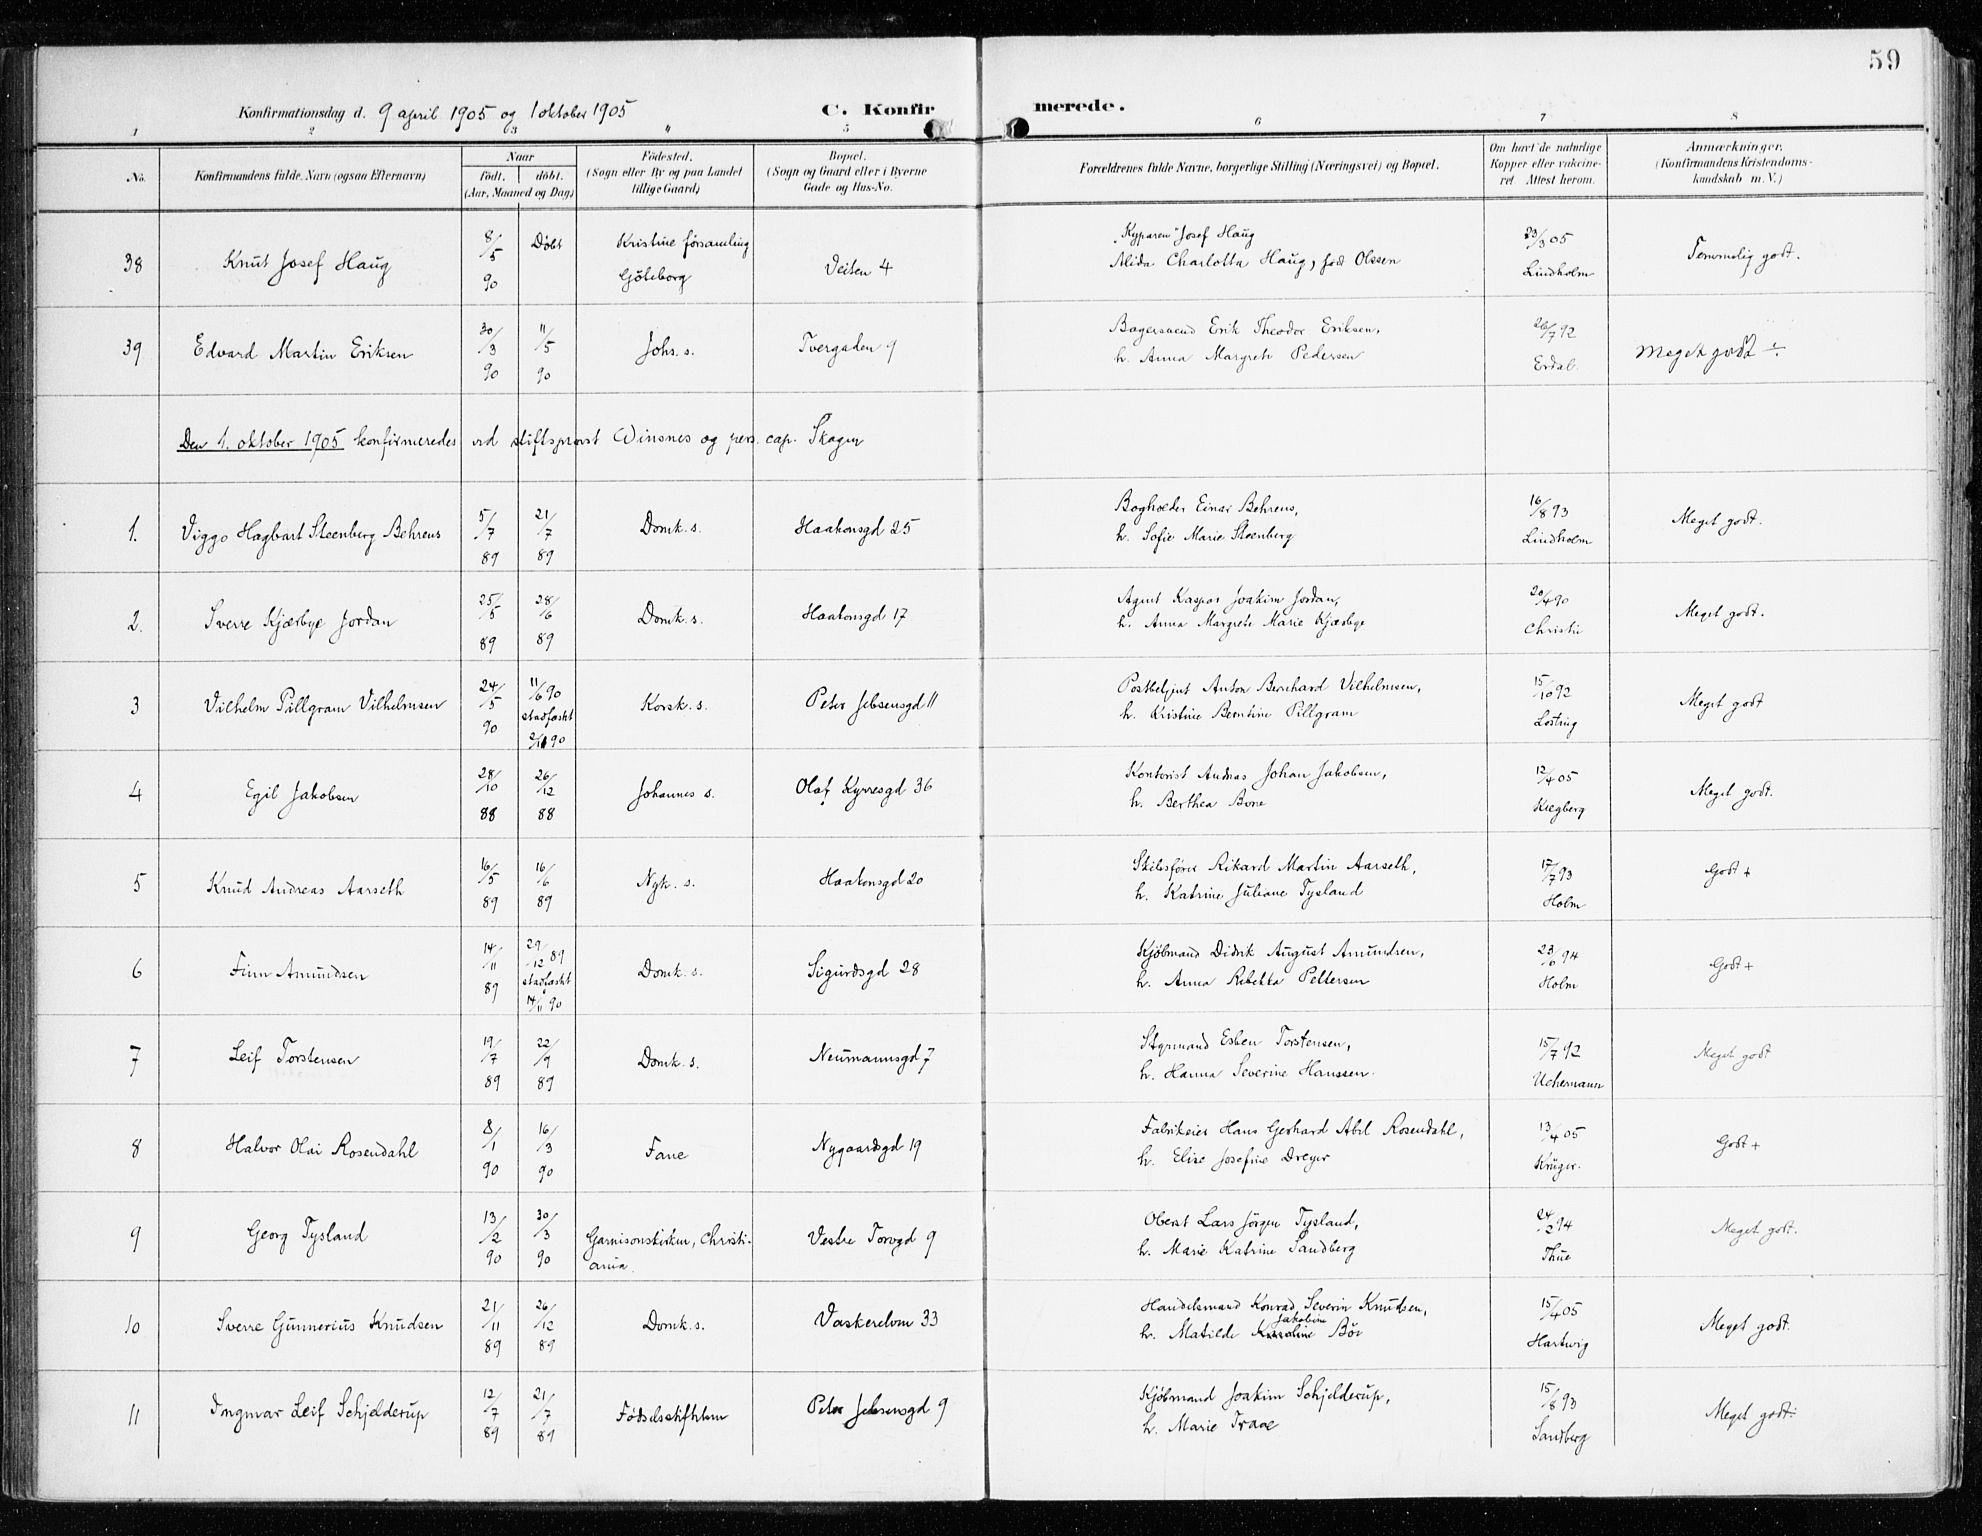 59
Konfirmationsdag d. 9 april 1905 og 1 oktober 1905
C. Konfirmerede.
1 2 3 " 5 6 7 8
No.
Konfirmandens fulde Navn (ogsaa Efternavn)
Naar
Født. døbt.
(Aar, Maaned og Dag)
Fødested.
(Sogn eller By og paa Landet
tillige Gaard)
Bopæl.
(Sogn og Gaard eller i Byerne
Gade og Hus-No.
Forældrenes fulde Navne, borgerlige Stilling (Næringsvei) og Bopæl.
Om havt de naturlige
Kopper eller vakcine-
ret Attest herom.
Anmærkninger.
(Konfirmandens Kristendoms-
kundskab m. V.)
38 Knut Josef Haug 8/5 90 Döbt Kristine församling Göteborg Veiten 4
"Kyparen" Josef Haug
Alida Charlotta Haug, föd Olssen
23/3 05 Lindholm Temmelig godt.
39 Edvard Martin Eriksen 30/3 90 11/5 90 Johs. s. Tvergaden 9
Bagersvend Erik Theodor Eriksen,
h. Anna Margrete Pedersen
26/7 92 Erdal. Meget godt ÷
Den 1. oktober 1905 konfirmeredes ved stiftsprovst Winsnes og pers. cap. Skagen
1. Viggo Hagbart Steenberg Behrens 5/7 89 21/7 89 Domk. s. Haakonsgd 25
Bogholder Einar Behrens,
h. Sofie Marie Steenberg
16/8 93 Lindholm Meget godt.
2. Sverre Kjærbye Jordan 25/5 89 28/6 89 Domk. s. Haakonsgd 17
Agent Kaspar Joakim Jordan,
h. Anna Margrete Marie Kjærbye
20/4 90 Christie Meget godt.
3 Vilhelm Pillgram Vilhelmsen 24/5 90 11/6 90 stadfæstet 2/11 90 Korsk. s. Peter Jebsensgd 11
Postbetjent Anton Bernhard Vilhelmsen,
h. Kristine Berntine Pillgram
15/10 92 Meget godt
4 Egil Jakobsen 28/10 88 26/12 88 Johannes s. Olaf Kyrresgd 36
Kontorist Andreas Johan Jakobsen,
h. Berthea Bone
12/4 05 Kiegberg Meget godt.
5 Knud Andreas Aarseth 16/5 89 16/6 89 Nyk. s. Haakonsgd 20
Skibsfører Rikard Martin Aarseth,
h. Katrine Juliane Tysland
17/7 93 Holm Godt +
6 Finn Amundsen 14/11 89 29/12 89 stadfæstet 14/11 90 Domk. s. Sigurdsgd 28
Kjöbmand Didrik August Amundsen,
h. Anna Rebekka Pettersen
94 Holm Godt +
7 Leif Torstensen 19/7 89 22/9 89 Domk. s. Neumannsgd 7
Styrmand Esben Torstensen,
h. Hanna Severine Hanssen.
15/7 92 Uchermann Meget godt
8 Halvor Olai Rosendahl 8/1 90 16/3 90 Fane Nygaardsgd 19
Fabrikeier Hans Gerhard Abel Rosendahl,
h. Elise Josefine Dreyer
13/4 05 Krüger. Godt +
9 Georg Tysland 13/2 90 30/3 90 Garnisonskirken, Christi-
ania. Vestre Torvgd 9
Oberst Lars Jörgen Tysland,
h. Marie Katrine Sandberg
24/2 94 Thue Meget godt.
10 Sverre Gunnerius Knudsen 21/11 89 26/12 89 Domk. s. Vaskerelven 33
Handelsmand Konrad Severin Knudsen,
h. Matilde Jakobine Böe
15/4 05 Hartwig Meget godt.
11 Ingmar Leif Schjelderup 12/7 89 21/7 89 Födselsstiftelsen Peter Jebsensgd 9
Kjöbmand Joakim Schjelderup,
h. Marie Traae
15/8 93 Sandberg Meget godt: